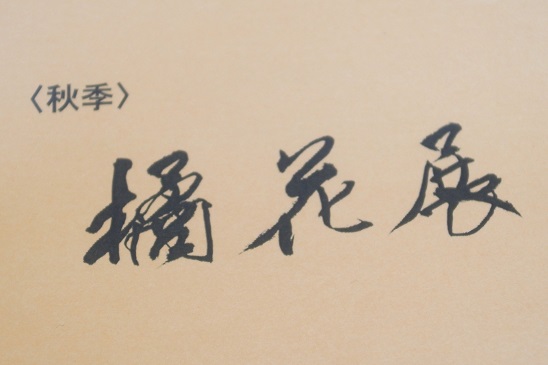 〈秋季〉
橘花展